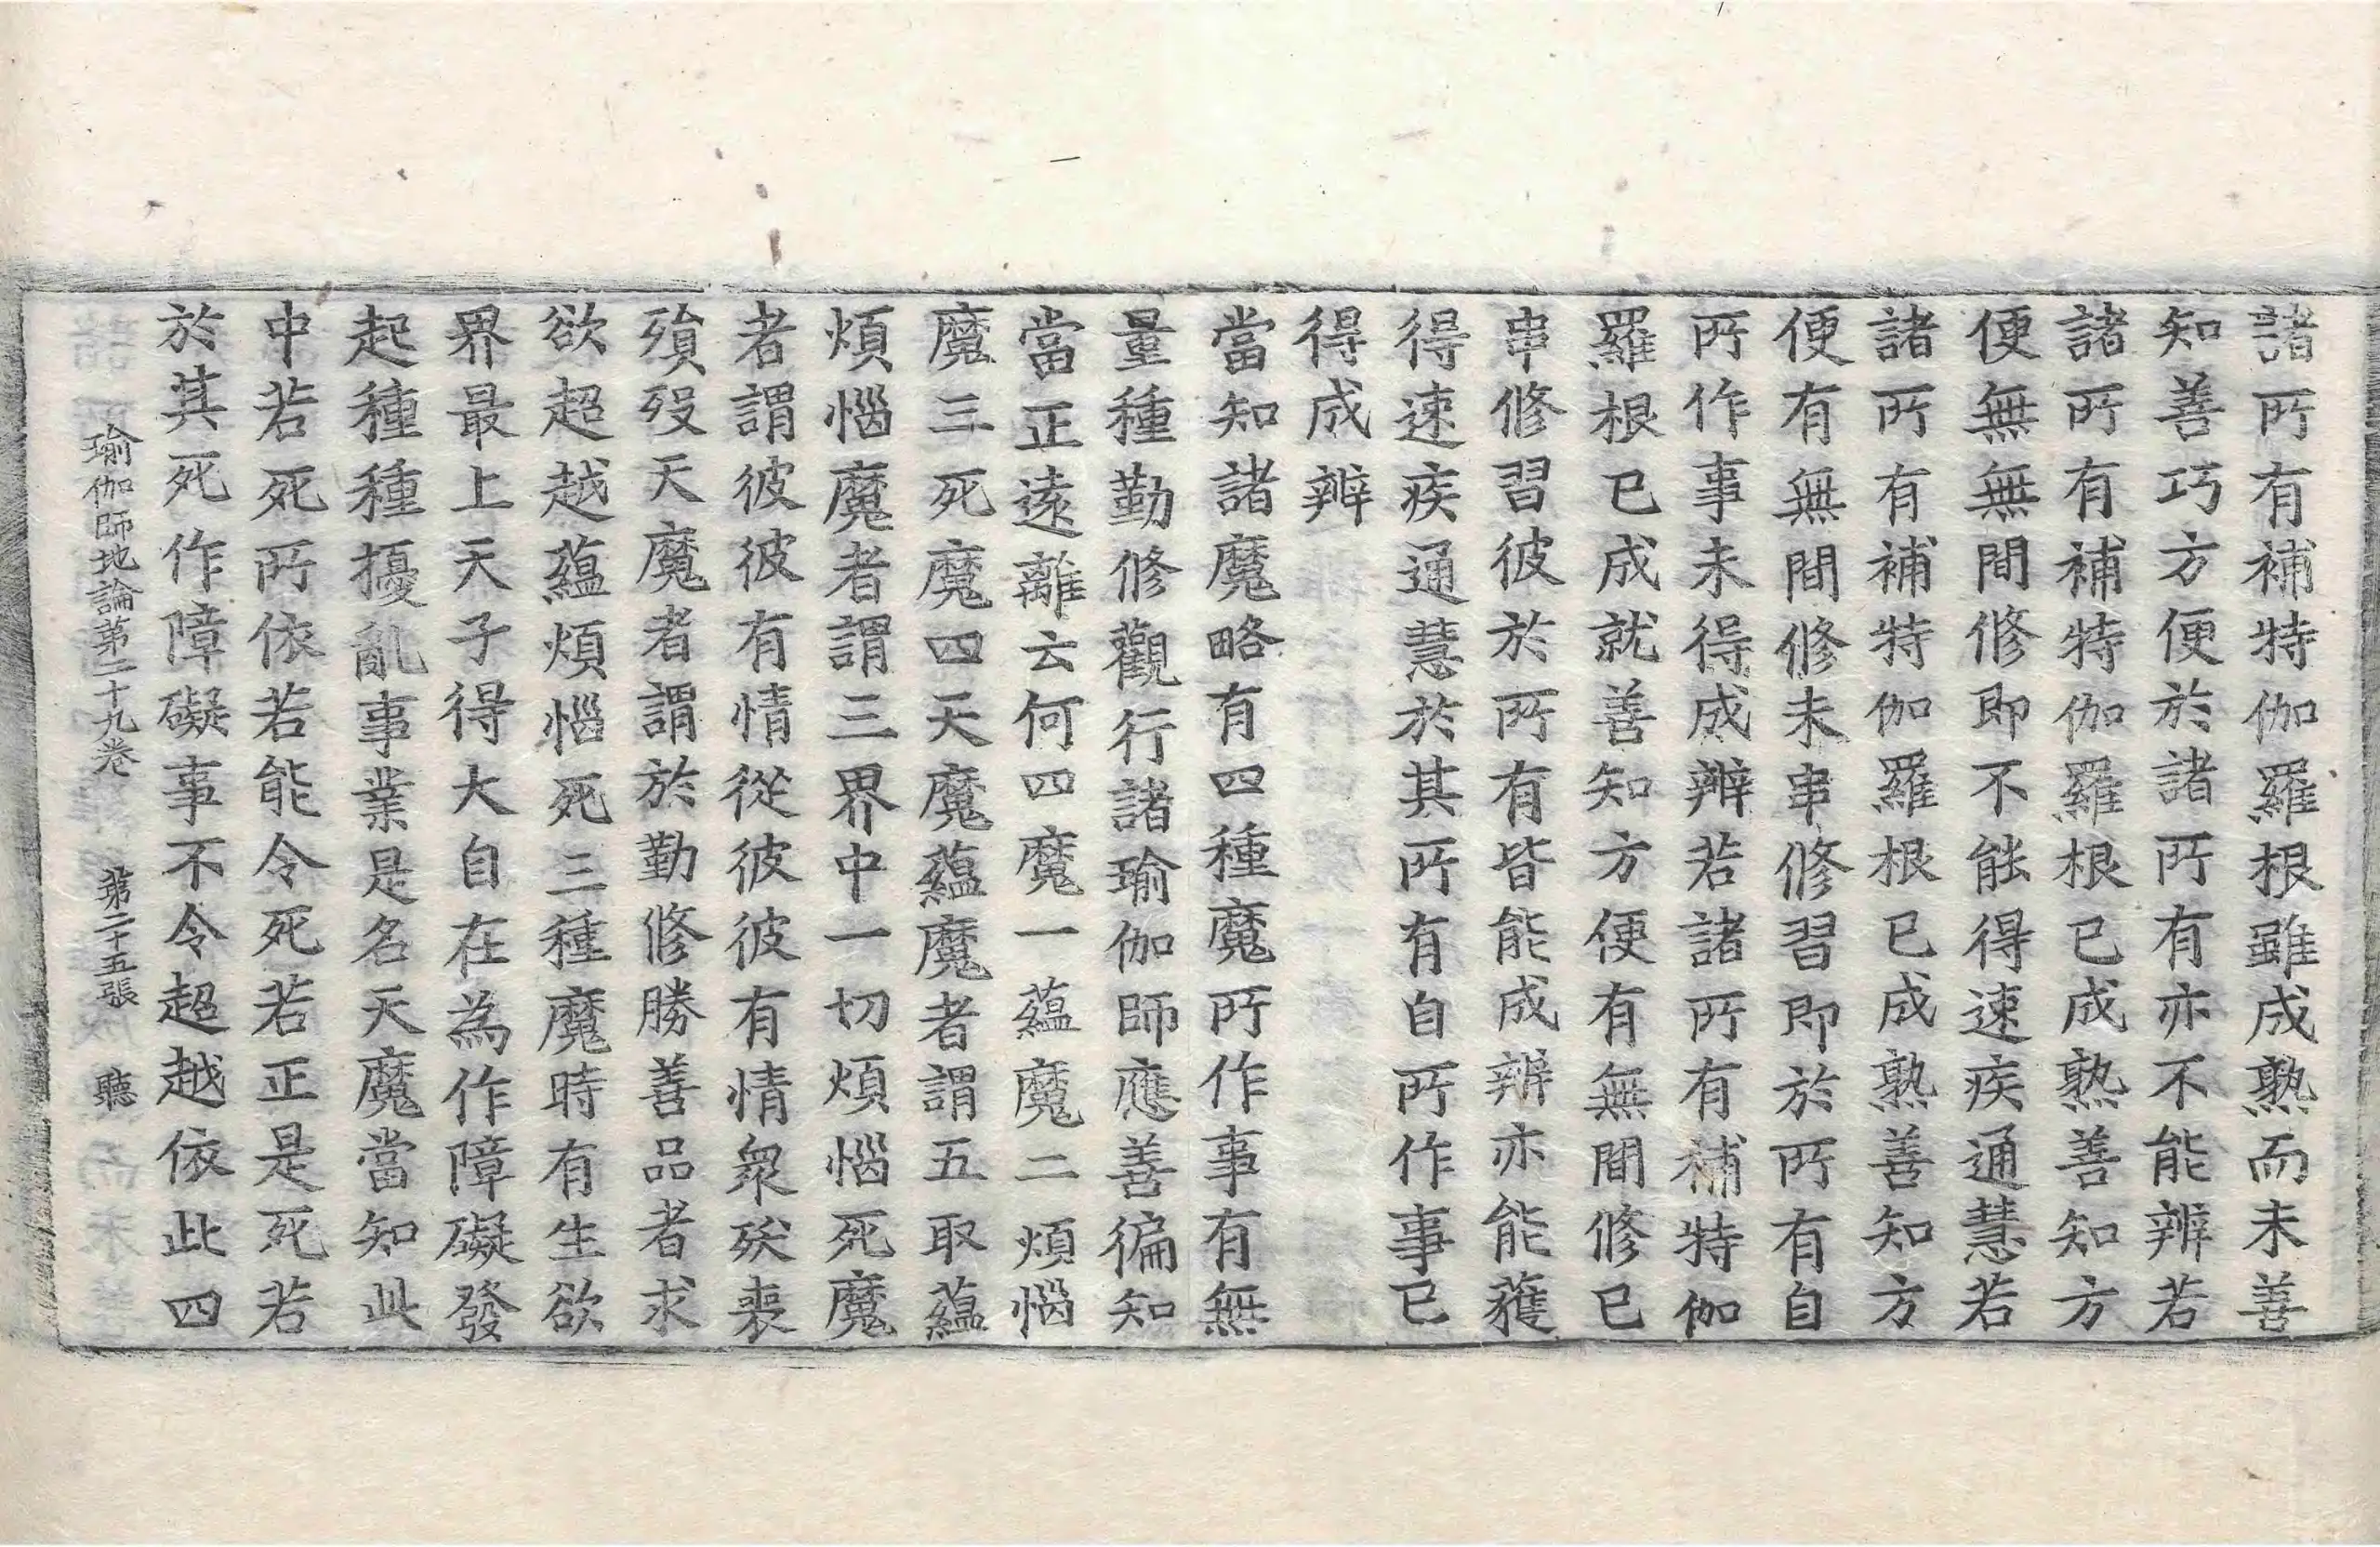 諸所有補特伽羅根雖成熟而未善
知善巧方便於諸所有亦不能辨若
諸所有補特伽羅根已成熟善知方
便無無間修即不能得速疾通慧若
諸所有補特伽羅根已成熟善知方
便有無間修未串修習即於所有自
所作事未得成辨若諸所有補特伽
羅根已成就善知方便有無間修已
串修習彼於所有皆能成辨亦能蘊
得速疾通慧於其所有自所作事已
得成辨
當知諸魔略有四種魔所作事有無
量種勤修觀行諸瑜伽師應善徧知
當正遠離云何四魔一蘊魔二煩惱
魔三死魔四天魔蘊魔者謂五取蘊
煩惱魔者謂三界中一切煩惱死魔
者謂彼彼有情從彼彼有情衆殀喪
殞歿天魔者謂於勤修勝善品者求
欲超越蘊煩惱死三種魔時有生欲
界最上天子得大自在為作障礙發
起種種擾亂事業是名天魔當知此
中若死所依若能令死若正是死若
於其死作障礙事不令超越依此四
瑜伽師地論第二十九卷 第二十五張 聽